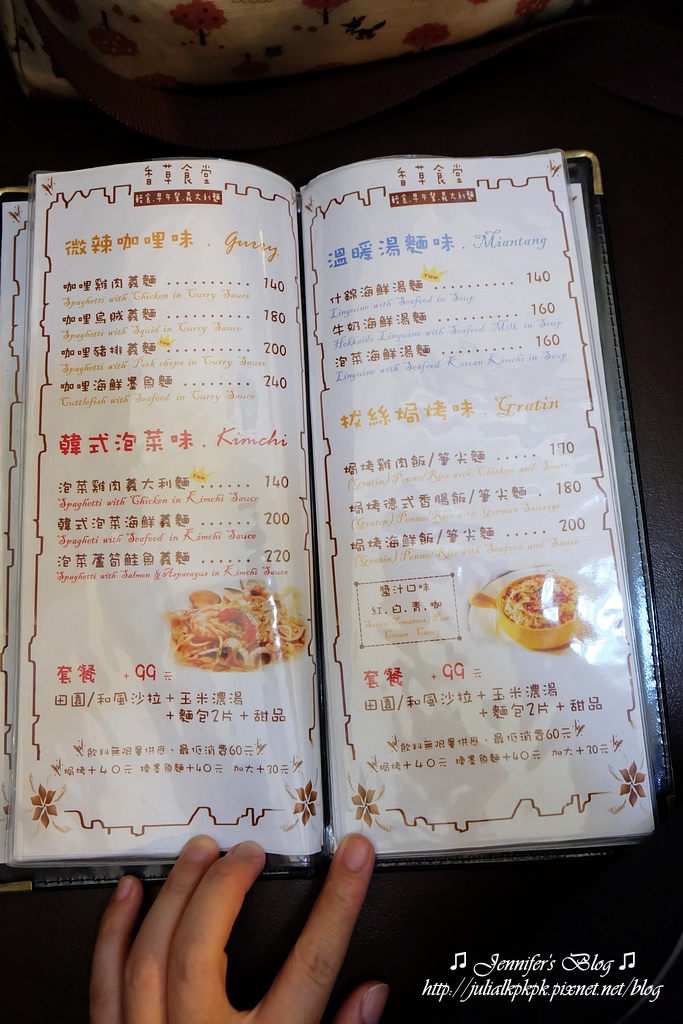 香草食堂
輕食.早午餐.義大利麵
微辣咖哩味.Gurry
咖哩雞肉義麵 .......... 140
Spaghetti with Chicken in Curry Sauce
咖哩烏賊義麵 ......... 180
Spaghetti with Squid in Curry Sauce
TOP
咖哩豬排義麵 ......... 200
Spaghetti with Pork chops in Curry Sauce
咖哩海鮮墨魚麵 ....... 240
Cuttlefish with Seafood in Curry Sauce
韓式泡菜味.Kimchi
TOP
泡菜雞肉義大利麵 ...... 140
Spaghetti with Chicken in Kimchi Sauce
韓式泡菜海鮮義麵 ...... 200
Spagheti with Seafood in Kimchi Sauce
泡菜蘆筍鮭魚義麵 ...... 220
Spaghetti with Salmon & Asparagus in Kimchi Sauce
套餐 +99元
田園/和風沙拉+玉米濃湯
+麵包2片+甜品
飲料無限量供應、最低消費60元
焗烤+40元 換墨魚麵+40元 加大+30元
香草食堂
輕食.早午餐.義大利麵
溫暖湯麵味.Miantang
TOP
什錦海鮮湯麵 .......... 140
Linguine with Seafood in Soup
牛奶海鮮湯麵 .......... 160
Hokkaido Linguine with Seafood Milk in Soup
泡菜海鮮湯麵 .......... 160
Linguine with Seafood Korean Kimchi in Soup
拔絲焗烤味.Gratin
焗烤雞肉飯/筆尖麵 ..... 170
(Gratin) Penne/Rice with Chicken and Sauce
焗烤德式香腸飯/筆尖麵 . 180
(Gratin) Penne/Rice with German Sausage
焗烤海鮮飯/筆尖麵 ..... 200
(Gratin) Penne/Rice with Seafood and Sauce
醬汁口味
紅.白.青.咖
Sauce Tomatoes Pesto
Cream Curry
套餐 +99元
田園/和風沙拉+玉米濃湯
+麵包2片+甜品
飲料無限量供應、最低消費60元
焗烤+40元 換墨魚麵+40元 加大+30元
♫ Jennifer's Blog ♫
http://julialkpkpk.pixnet.net/blog